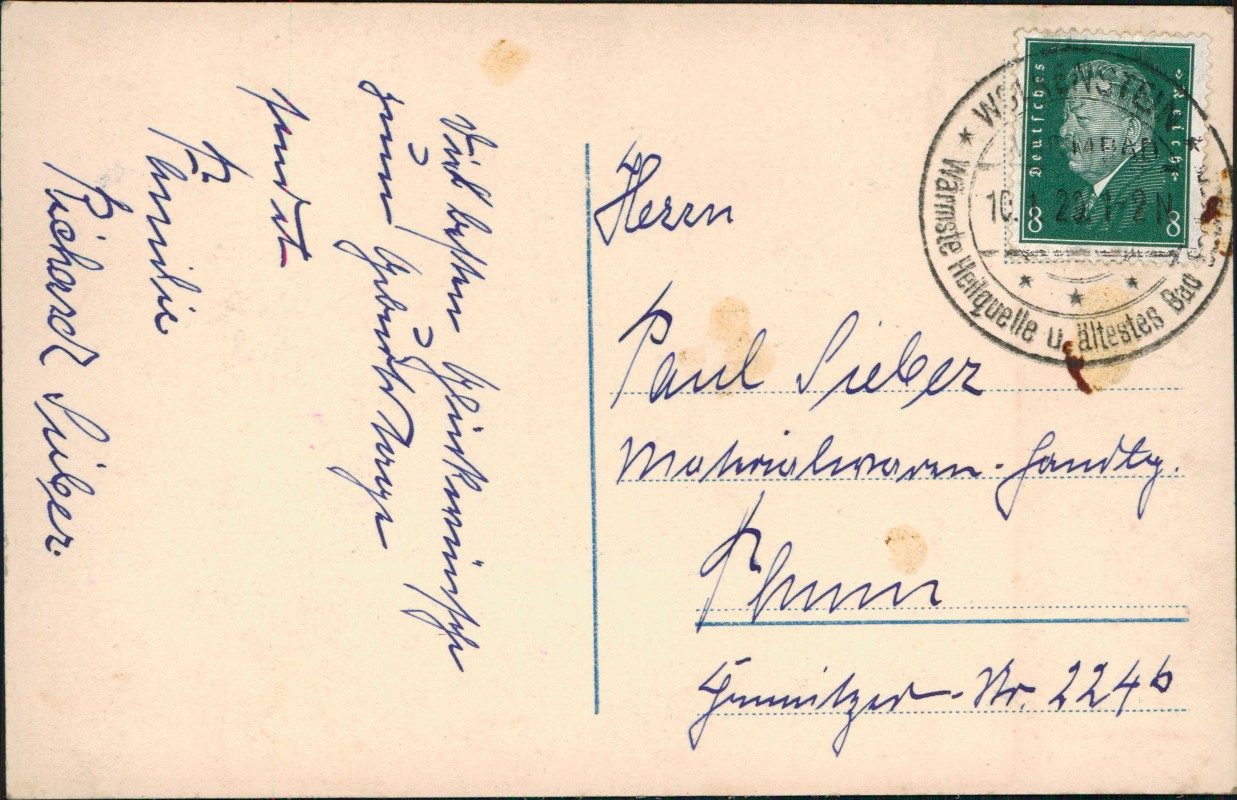 Viel besten Glückwünsche
zum Geburtstage
sendet
Familie
Richard Sieber.
Herrn
Paul Sieber
Materialwaren-Handlg.
Thum
Chemnitzer-Nr. 224b
Deutsches Reich
8 8
WOLKENSTEIN
WARMBAD
10.1.29.1-2N
Wärmste Heilquelle u. ältestes Bad